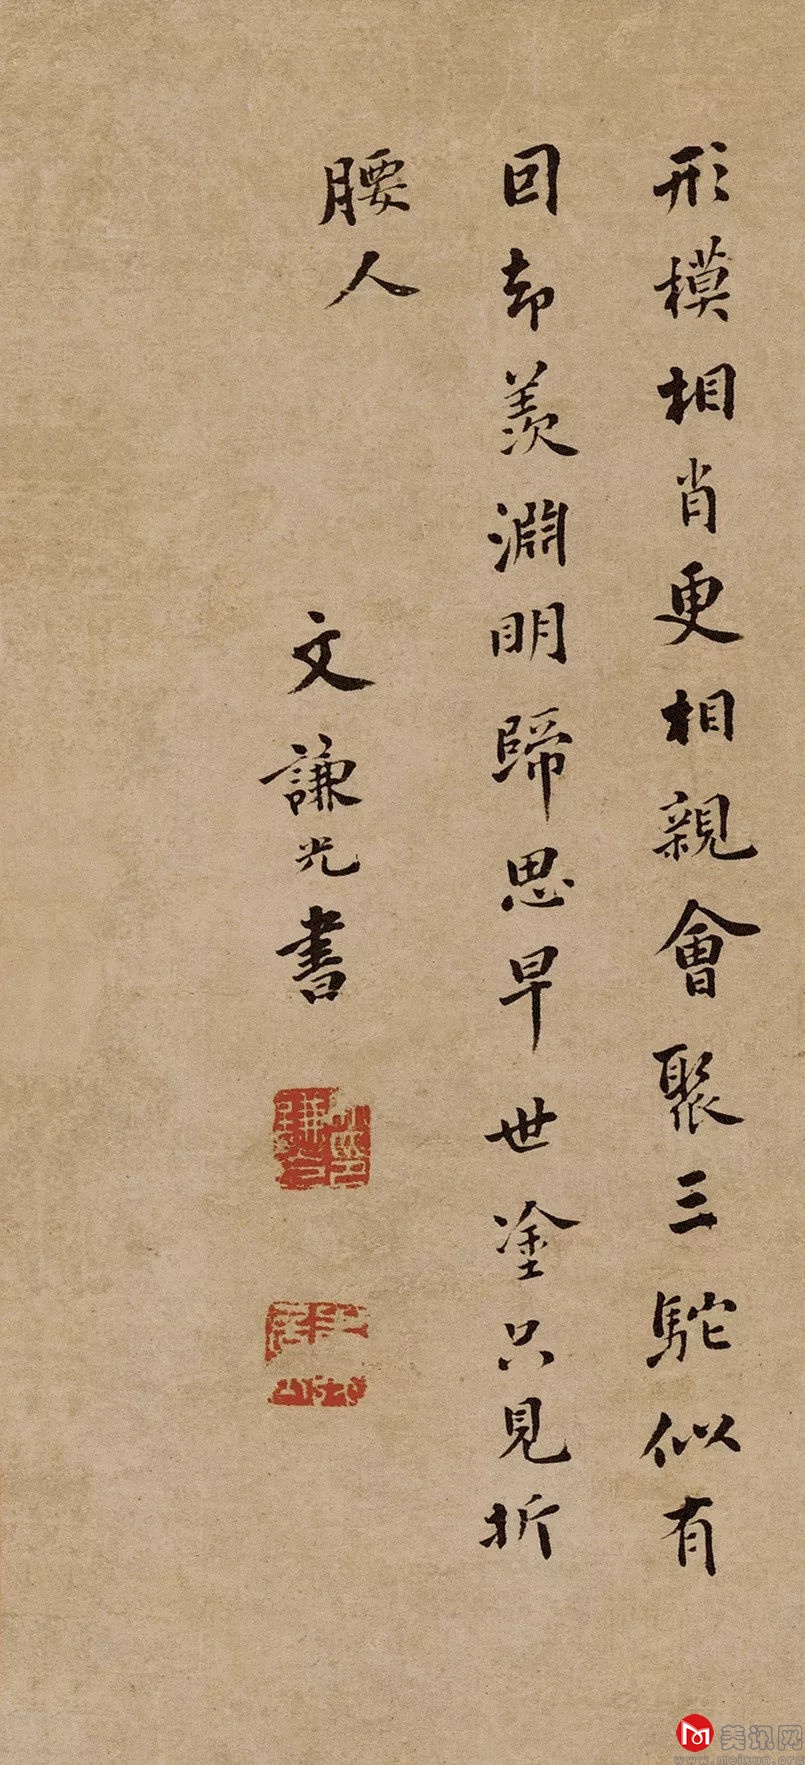 形模相肖更相親會聚三駝似有
因却羨淵明歸思早世塗只見折
腰人
文謙光書
美讯网
www.meixun.org